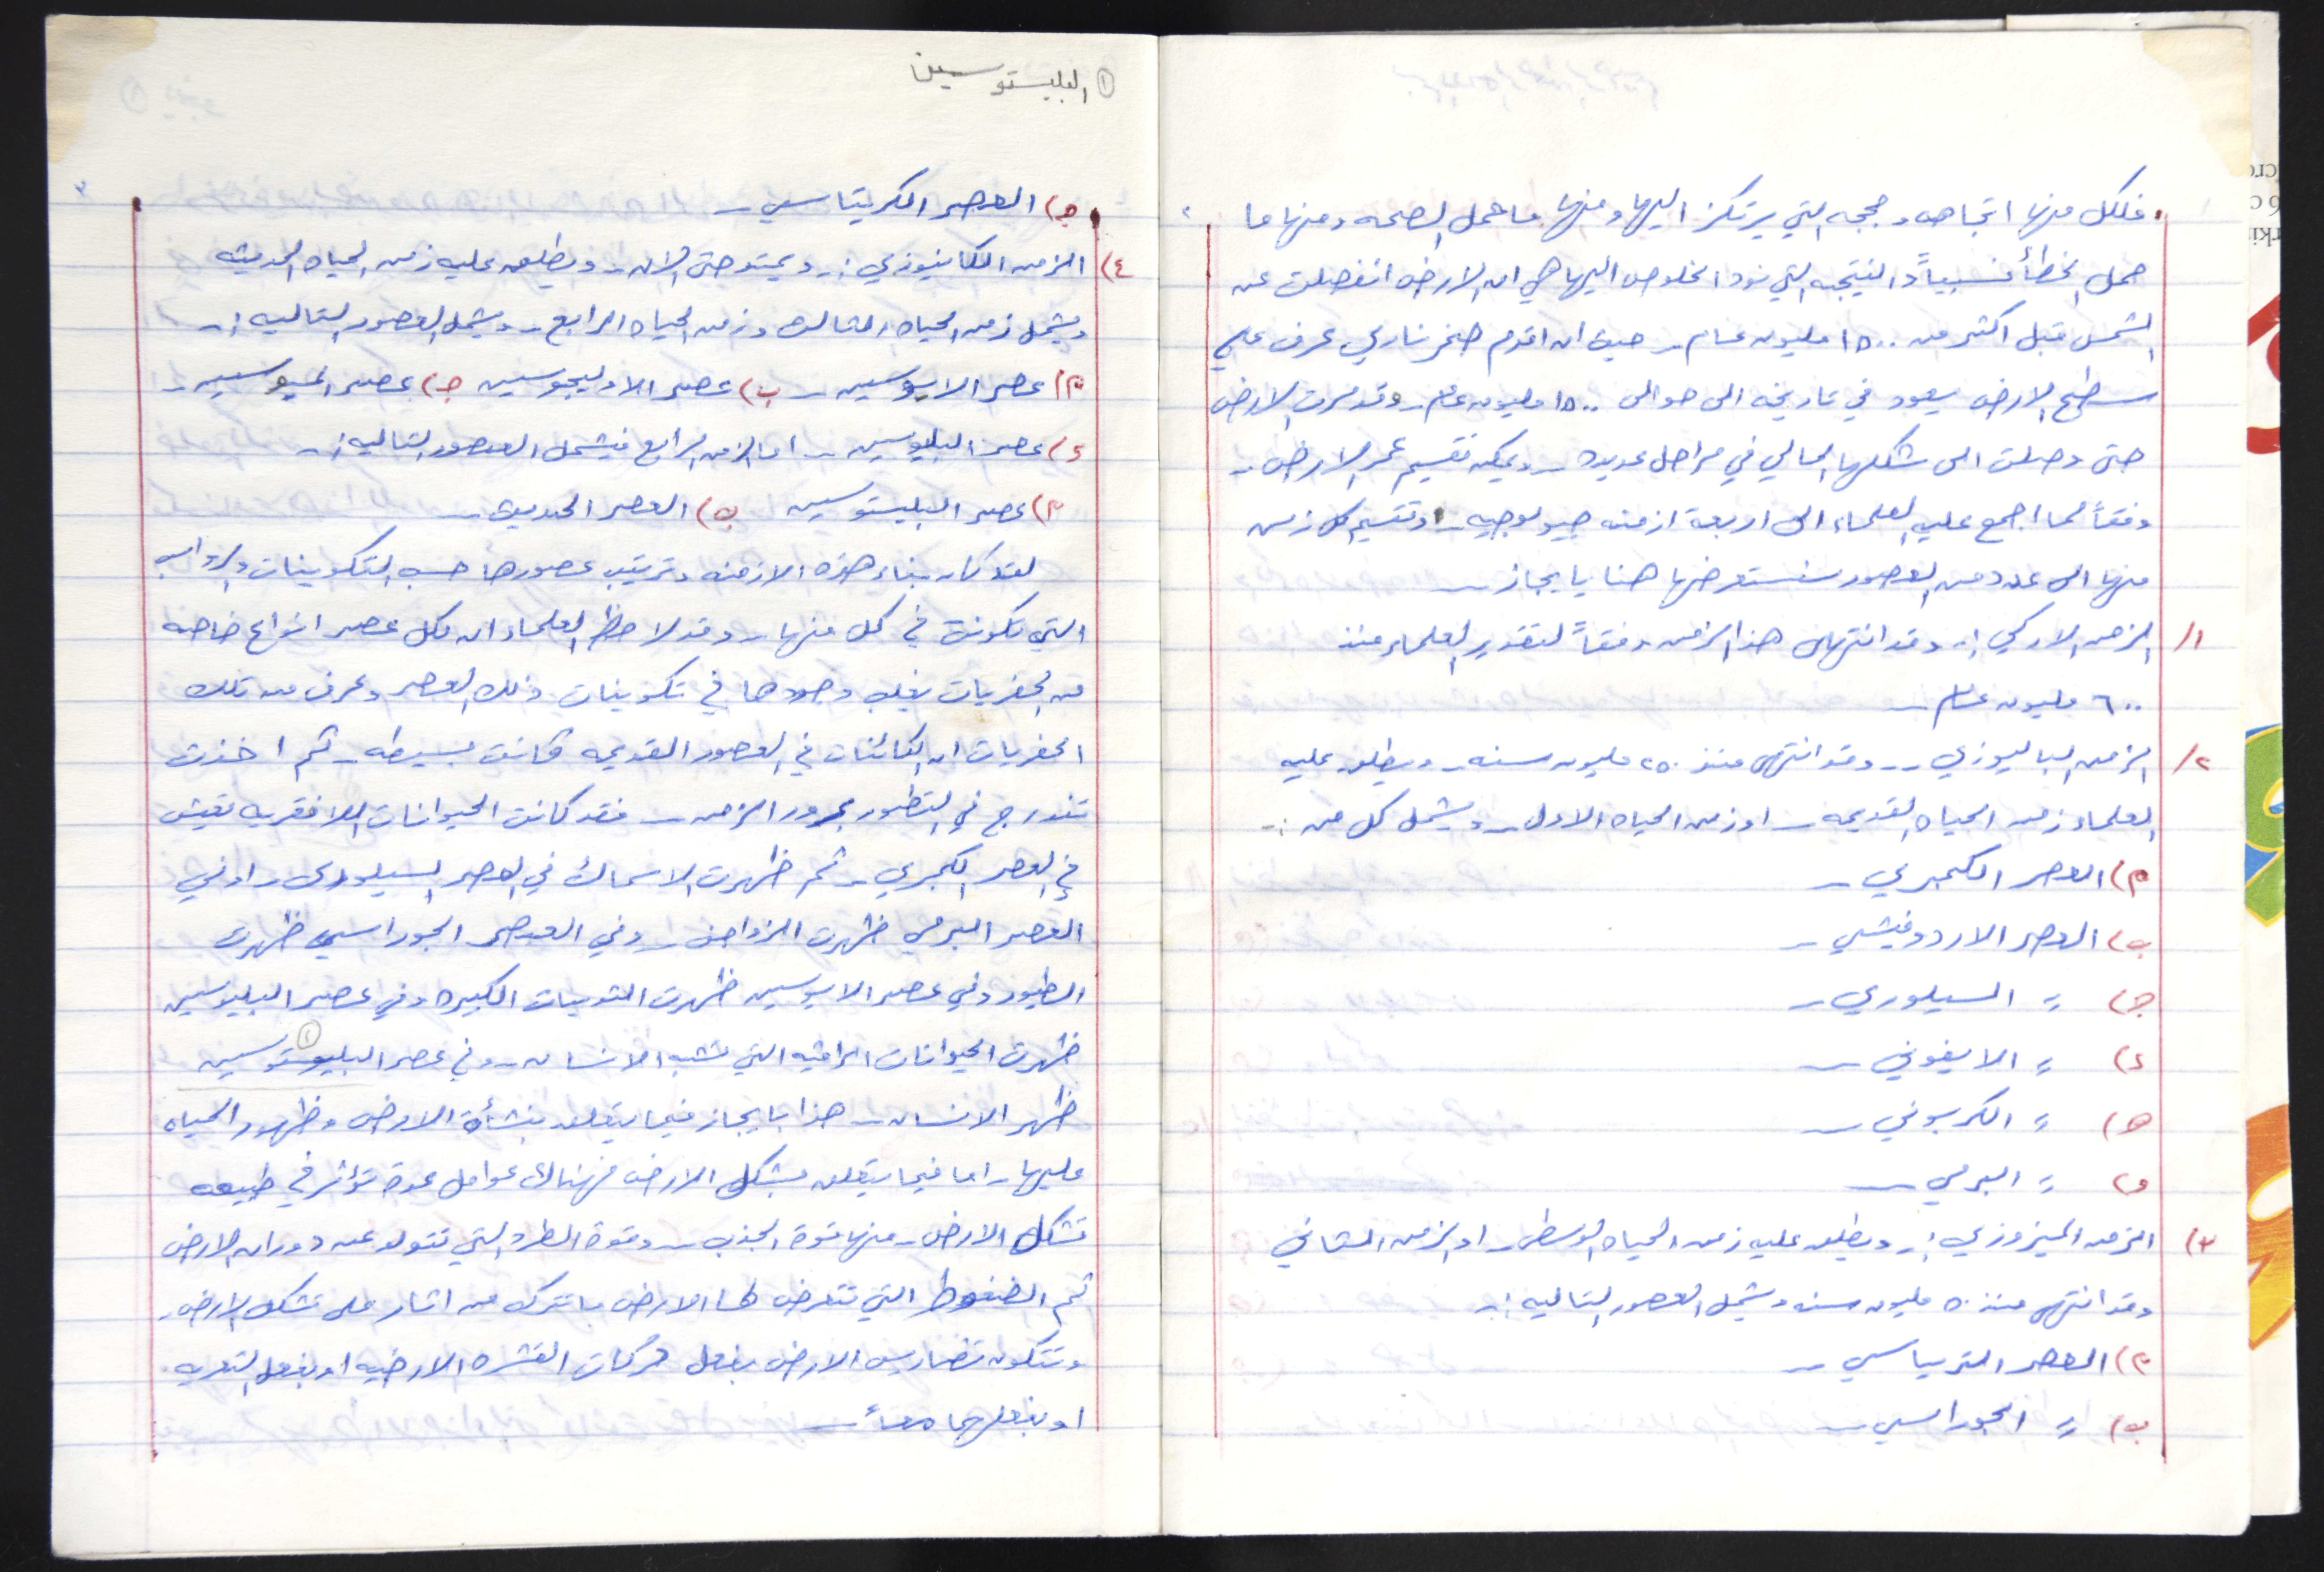 ٢
فلكل منها اتجاهه وحججه التي يرتكز اليها ومنها ما حمل الصحه ومنها ما
حمل الخطأ نسبياً والنتيجه التي نود الخلوص اليها هي ان الارض انفصلت عن
الشمس قبل اكثر من ١٥٠٠ مليون عام ـ حيث ان اقدم صخر ناري عرف على
سطح الارض يعود في تاريخه الى حوالى ١٥٠٠ مليون عام ـ وقد مرت الارض
حتى وصلت الى شكلها الحالي في مراحل عديده ـ ويمكن تقسيم عمر الارض ـ
وفقاً لما اجمع عليه العلماء الى اربعة ازمنه جيولوجيه ـ وتقسيم كل زمن
منها الى عدد من العصور سنستعرضها هنا بايجاز ـ
١/ الزمن الاركي :ـ وقد انتهى هذا الزمن وفقاً لتقدير العلماء منذ
٦٠٠ مليون عام ـ
٢/ الزمن الباليوزي ـ ـ وقد انتهى منذ ٢٥٠ مليون سنه ـ ويطلق عليه
العلماء زمن الحياه القديمه ـ او زمن الحياه الاول ـ ويشمل كل من :ـ
م) العصر الكمبري ـ
ب) العصر الاردوفيشي ـ
ج) 〃 السيلوري ـ
د) 〃 الايفوني ـ
ه) 〃 الكربوني ـ
و) 〃 البرمي ـ
٣) الزمن الميزوزي :ـ ويطلق عليه زمن الحياه الوسطى ـ او الزمن الثاني
وقد انتهى منذ ٥٠ مليون سنه ويشمل العصور التاليه :ـ
م) العصر الترياسي ـ
ب) 〃 الجوراسي ـ
① البليستوسين
٣
ج) العصر الكريتاسي ـ
٤) الزمن الكاينوزي :ـ ويمتد حتى الان ـ ويطلق عليه زمن الحياه الحديثه
ويشمل زمن الحياه الثالث وزمن الحياه الرابع ـ ويشمل العصور التاليه :ـ
م) عصر الايوسين ـ ب) عصر الاوليجوسين ج) عصر الميوسين ـ
د) عصر البليوسين ـ اما الزمن الرابع فيشمل العصور التاليه :ـ
م) عصر البليستوسين ب) العصر الحديث ـ
لقد كان بناء هذه الازمنه وترتيب عصورها حسب التكوينات والرواسب
التي تكونت في كل منها ـ وقد لاحظ العلماء ان لكل عصر انواع خاصه
من الحفريات يغلب وجودها في تكوينات ذلك العصر وعرف من تلك
الحفريات ان الكائنات في العصور القديمه كانت بسيطه ـ ثم اخذت
تتدرج في التطور بمرور الزمن ـ فقد كانت الحيوانات اللافقريه تعيش
في العصر الكمبري ـ ثم ظهرت الاسماك في العصر السيلورى ـ وفي
العصر البرمي ظهرت الزواحف ـ وفي العصر الجوراسي ظهرت
الطيور وفي عصر الايوسين ظهرت الثدييات الكبيره وفي عصر البليوسين
ظهرت الحيوانات الراقيه التي تشبه الانسان ـ وفي عصر البليوستوسين ①
ظهر الانسان ـ هذا بايجاز فيما يتعلق بنشأة الارض وظهور الحياه
عليها ـ اما فيما يتعلق بشكل الارض فهنالك عوامل عدة تؤثر في طبيعه
تشكل الارض ـ منها قوة الجذب ـ وقوة الطرد التي تتولد عن دوران الارض
ثم الضغوط التي تتعرض لها الارض بما تتركه من اثار على تشكل الارض ـ
وتتكون تضاريس الارض بفعل حركات القشره الارضيه او بفعل التعريه
او بفعلهما معاً ـ